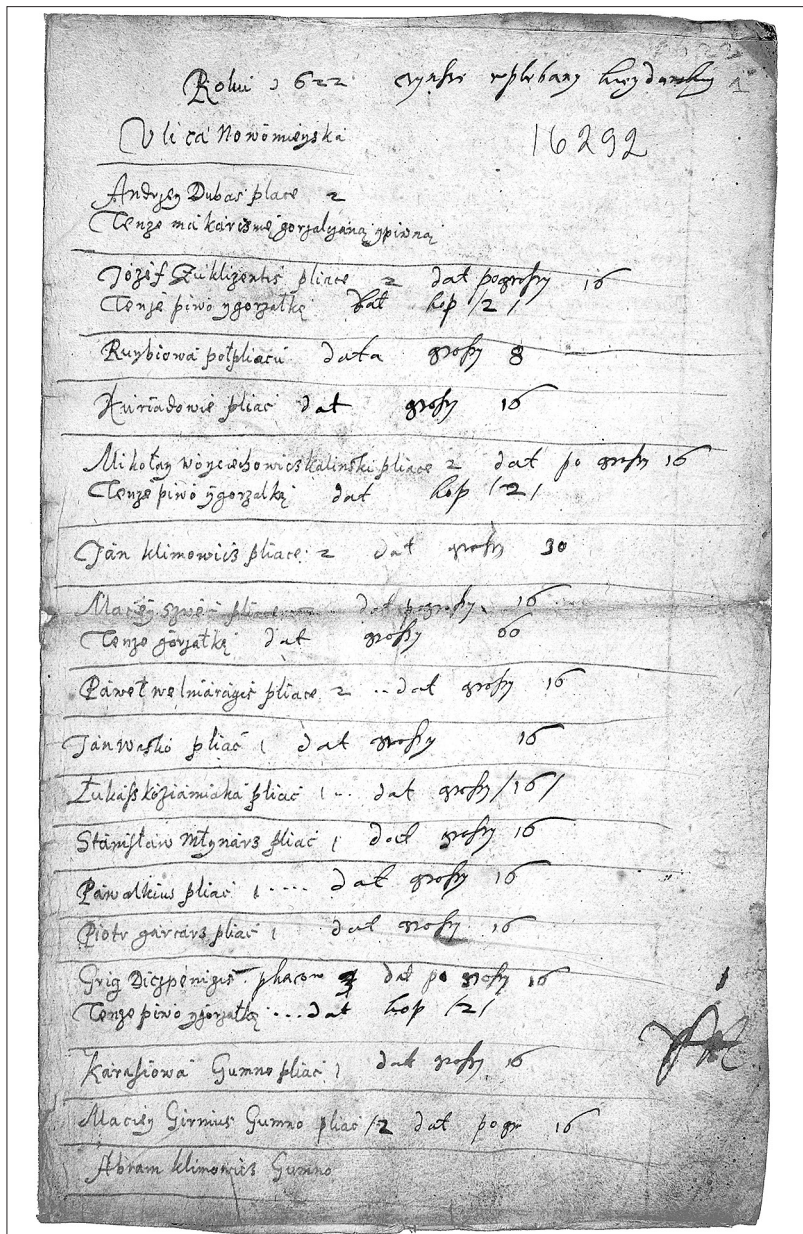 Roku 1622 czynsze w plebany kieydanskiey 1
Vlica Nowomieyska
16292
Andrzey Dubas place 2
Tenze ma karczmę gorzalyaną y piwną
Jozef Zuklizentis pliace 2 dał po groszy 16
Tenze piwo y gorzałkę dał kop /2/
Ruybiowa poł pliacu dała groszy 8
Kuriadowie pliac dał groszy 16
Mikołay woyciechowicz kalinski pliace 2 dał po groszy 16
Tenze piwo y gorzalką dał kop /2/
Jan klimowicz pliace 2 dał groszy 30
Maciey szwec pliace dał po groszy 16
Tenze gorzałką dał groszy 60
Paweł welniaragis pliace 2 .. dał groszy 16
Jan Wasko pliac 1 dał groszy 16
Łukasz koziamiaka pliac 1 .. dał groszy /16/
Stanisław Młynarz pliac 1 dał groszy 16
Pawalkius pliac 1 .... dał groszy 16
Piotr garcarz pliac 1 dał groszy 16
Grig Diczpenigis dał po groszy 16
Tenze piwo y gorzałkę ... dał kop /2/
Karasiowa Gumno pliac 1 dał groszy 16
Maciey Girnius Gumno pliac /2 dał po gr 16
Abram klimowicz Gumno